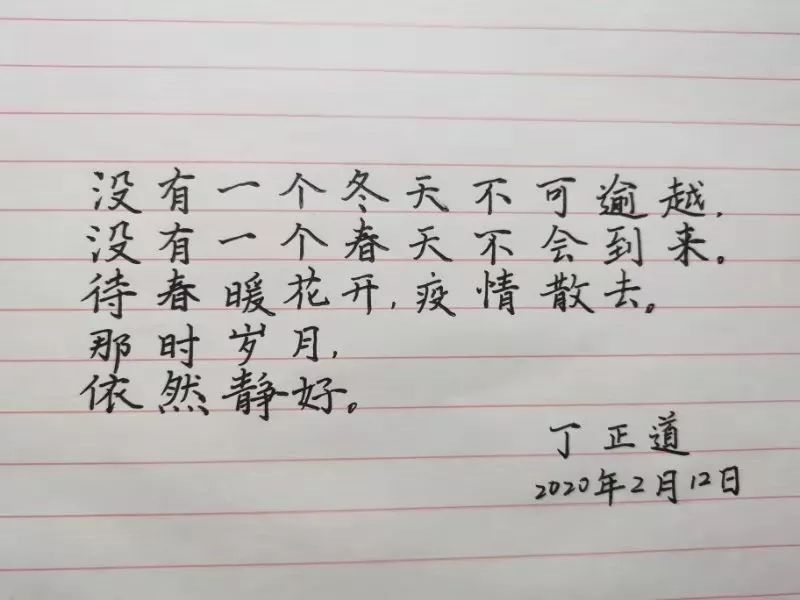 没有一个冬天不可逾越,
没有一个春天不会到来。
待春暖花开,疫情散去。
那时岁月,
依然静好。
丁正道
2020年2月12日